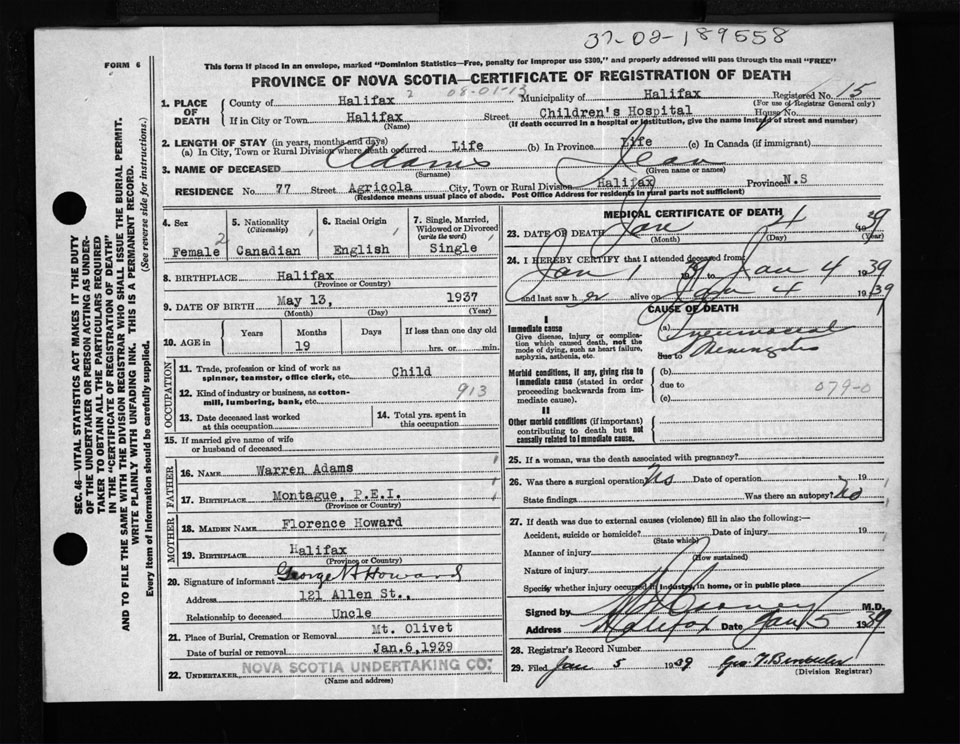 37-02-189558
FORM 6
This form if placed in an envelope, marked "Dominion Statistics—Free, penalty for improper use $300," and properly addressed will pass through the mail "FREE"
PROVINCE OF NOVA SCOTIA—CERTIFICATE OF REGISTRATION OF DEATH
SEC. 46—VITAL STATISTICS ACT MAKES IT THE DUTY
OF THE UNDERTAKER OR PERSON ACTING AS UNDER-
TAKER TO OBTAIN ALL THE PARTICULARS REQUIRED
IN THE "CERTIFICATE OF REGISTRATION OF DEATH"
AND TO FILE THE SAME WITH THE DIVISION REGISTRAR WHO SHALL ISSUE THE BURIAL PERMIT.
WRITE PLAINLY WITH UNFADING INK. THIS IS A PERMANENT RECORD.
Every item of Information should be carefully supplied. (See reverse side for instructions.)
1. PLACE OF DEATH County of Halifax 2 08-01-13 Municipality of Halifax Registered No. 15
(For use of Registrar General only)
If in City or Town Halifax Street Children's Hospital House No.
(Name) (If death occurred in a hospital or institution, give the name instead of street and number)
2. LENGTH OF STAY (in years, months and days)
(a) In City, Town or Rural Division where death occurred Life (b) In Province Life (c) In Canada (if immigrant)
3. NAME OF DECEASED Adams Jean
(Surname) (Given name or names)
RESIDENCE No. 77 Street Agricola City, Town or Rural Division Halifax Province N.S
(Residence means usual place of abode. Post Office Address for residents in rural parts not sufficient)
4. Sex Female 2
5. Nationality (Citizenship) Canadian 1
6. Racial Origin English 1
7. Single, Married, Widowed or Divorced (write the word) Single 1
8. BIRTHPLACE Halifax
(Province or Country)
9. DATE OF BIRTH May 13, 1937
(Month) (Day) (Year)
10. AGE in Years Months 19 Days If less than one day old hrs. or min.
OCCUPATION
11. Trade, profession or kind of work as spinner, teamster, office clerk, etc. Child
12. Kind of industry or business, as cotton-mill, lumbering, bank, etc. 913
13. Date deceased last worked at this occupation
14. Total yrs. spent in this occupation
15. If married give name of wife or husband of deceased
FATHER
16. NAME Warren Adams
17. BIRTHPLACE Montague, P.E.I.
(Province or Country)
MOTHER
18. MAIDEN NAME Florence Howard
19. BIRTHPLACE Halifax
(Province or Country)
20. Signature of informant George H Howard
Address 121 Allen St.,
Relationship to deceased Uncle
21. Place of Burial, Cremation or Removal Mt. Olivet
Date of burial or removal Jan.6,1939
22. UNDERTAKER NOVA SCOTIA UNDERTAKING CO.
(Name and address)
MEDICAL CERTIFICATE OF DEATH
23. DATE OF DEATH Jan 4 39
(Month) (Day) (Year)
24. I HEREBY CERTIFY that I attended deceased from:
Jan 1 39 to Jan 4 1939
and last saw her alive on Jan 4 1939
CAUSE OF DEATH
I
Immediate cause
Give disease, injury or complication which caused death, not the mode of dying, such as heart failure, asphyxia, asthenia, etc.
(a) Pneumococcal
due to Meningitis
Morbid conditions, if any, giving rise to immediate cause (stated in order proceeding backwards from immediate cause).
(b)
due to 079-0
(c)
II
Other morbid conditions (if important) contributing to death but not causally related to immediate cause.
25. If a woman, was the death associated with pregnancy?
26. Was there a surgical operation? No Date of operation 19
State findings Was there an autopsy? No
27. If death was due to external causes (violence) fill in also the following:—
Accident, suicide or homicide? Date of injury 19
(State which)
Manner of injury
(How sustained)
Nature of injury
Specify whether injury occurred in Industry, in home, or in public place
Signed by M.D.
Address Halifax Date Jan 5 1939
28. Registrar's Record Number
29. Filed Jan 5 1939 Geo. T.
(Division Registrar)